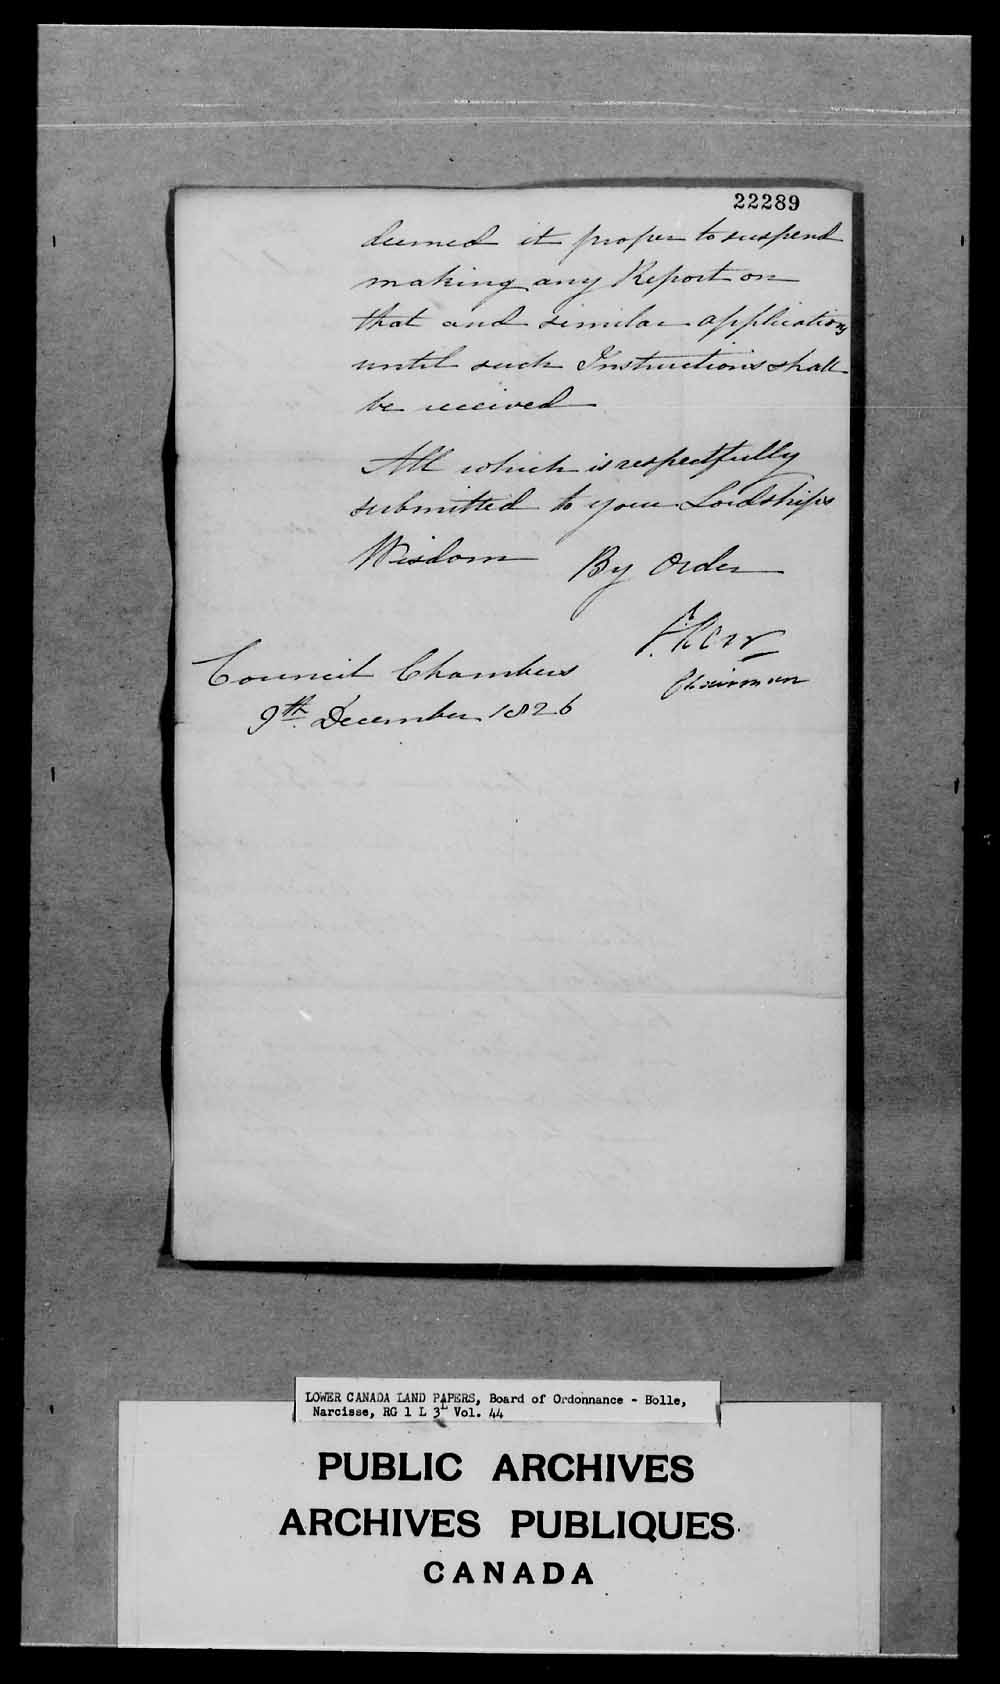 22289
deemed it proper to suspend
making any Report on
that and similar applications
until such Instructions shall
be received
All which is respectfully
submitted to your Lordships
Wisdom By Order
Kerr
Chairman
Council Chambers
9th December 1826
LOWER CANADA LAND PAPERS, Board of Ordonnance - Bolle,
Narcisse, RG 1 L 3L Vol. 44
PUBLIC ARCHIVES
ARCHIVES PUBLIQUES
CANADA